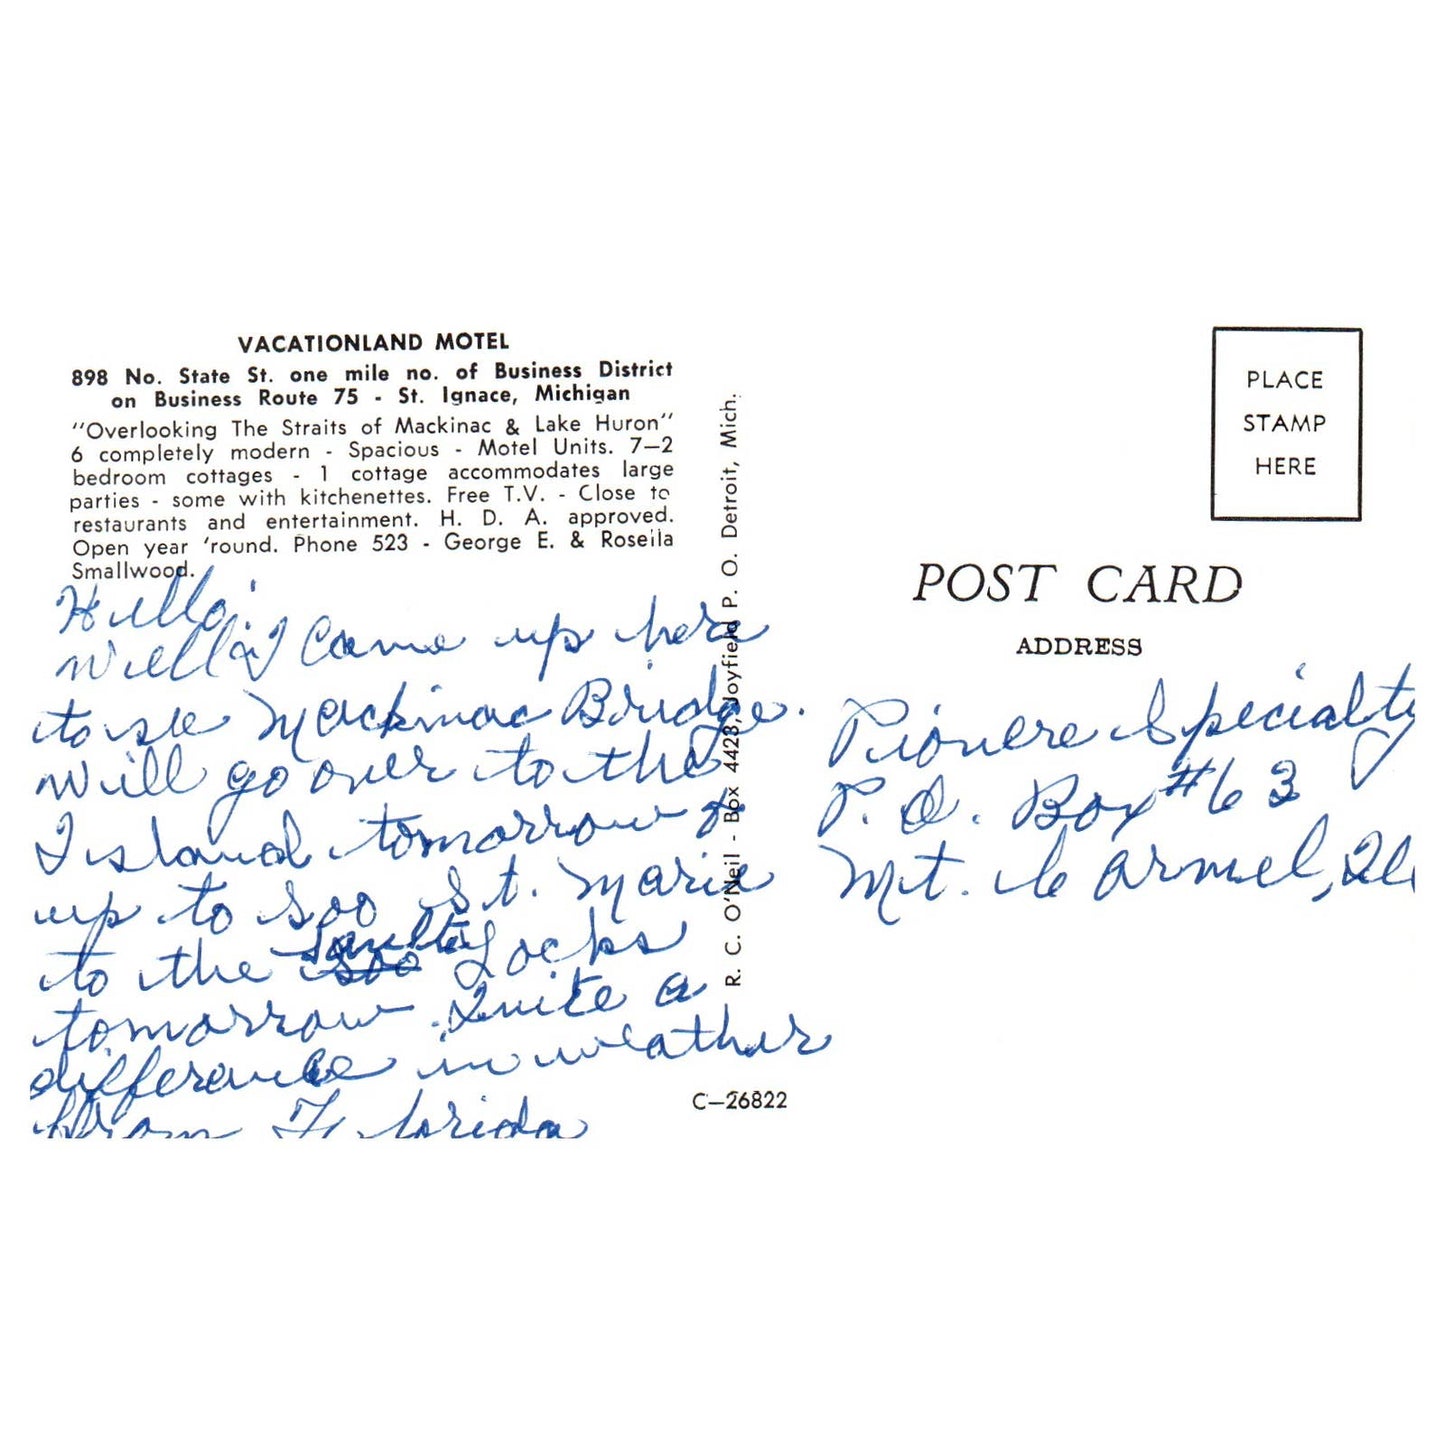 VACATIONLAND MOTEL
898 No. State St. one mile no. of Business District
on Business Route 75 - St. Ignace, Michigan
"Overlooking The Straits of Mackinac & Lake Huron"
6 completely modern - Spacious - Motel Units. 7—2
bedroom cottages - 1 cottage accommodates large
parties - some with kitchenettes. Free T.V. - Close to
restaurants and entertainment. H. D. A. approved.
Open year 'round. Phone 523 - George E. & Roseila
Smallwood.
Hello!
Well I came up here
to see Mackinac Bridge.
Will go over to the
Island tomorrow &
up to Soo St. Marie
to the Soo Locks
tomorrow. Quite a
difference in weather
from Florida
R. C. O'Neil - Box 4423, Joyfield P. O. Detroit, Mich.
C—26822
PLACE
STAMP
HERE
POST CARD
ADDRESS
Pionere Specialty
P. O. Box #63
Mt. Carmel, Ill